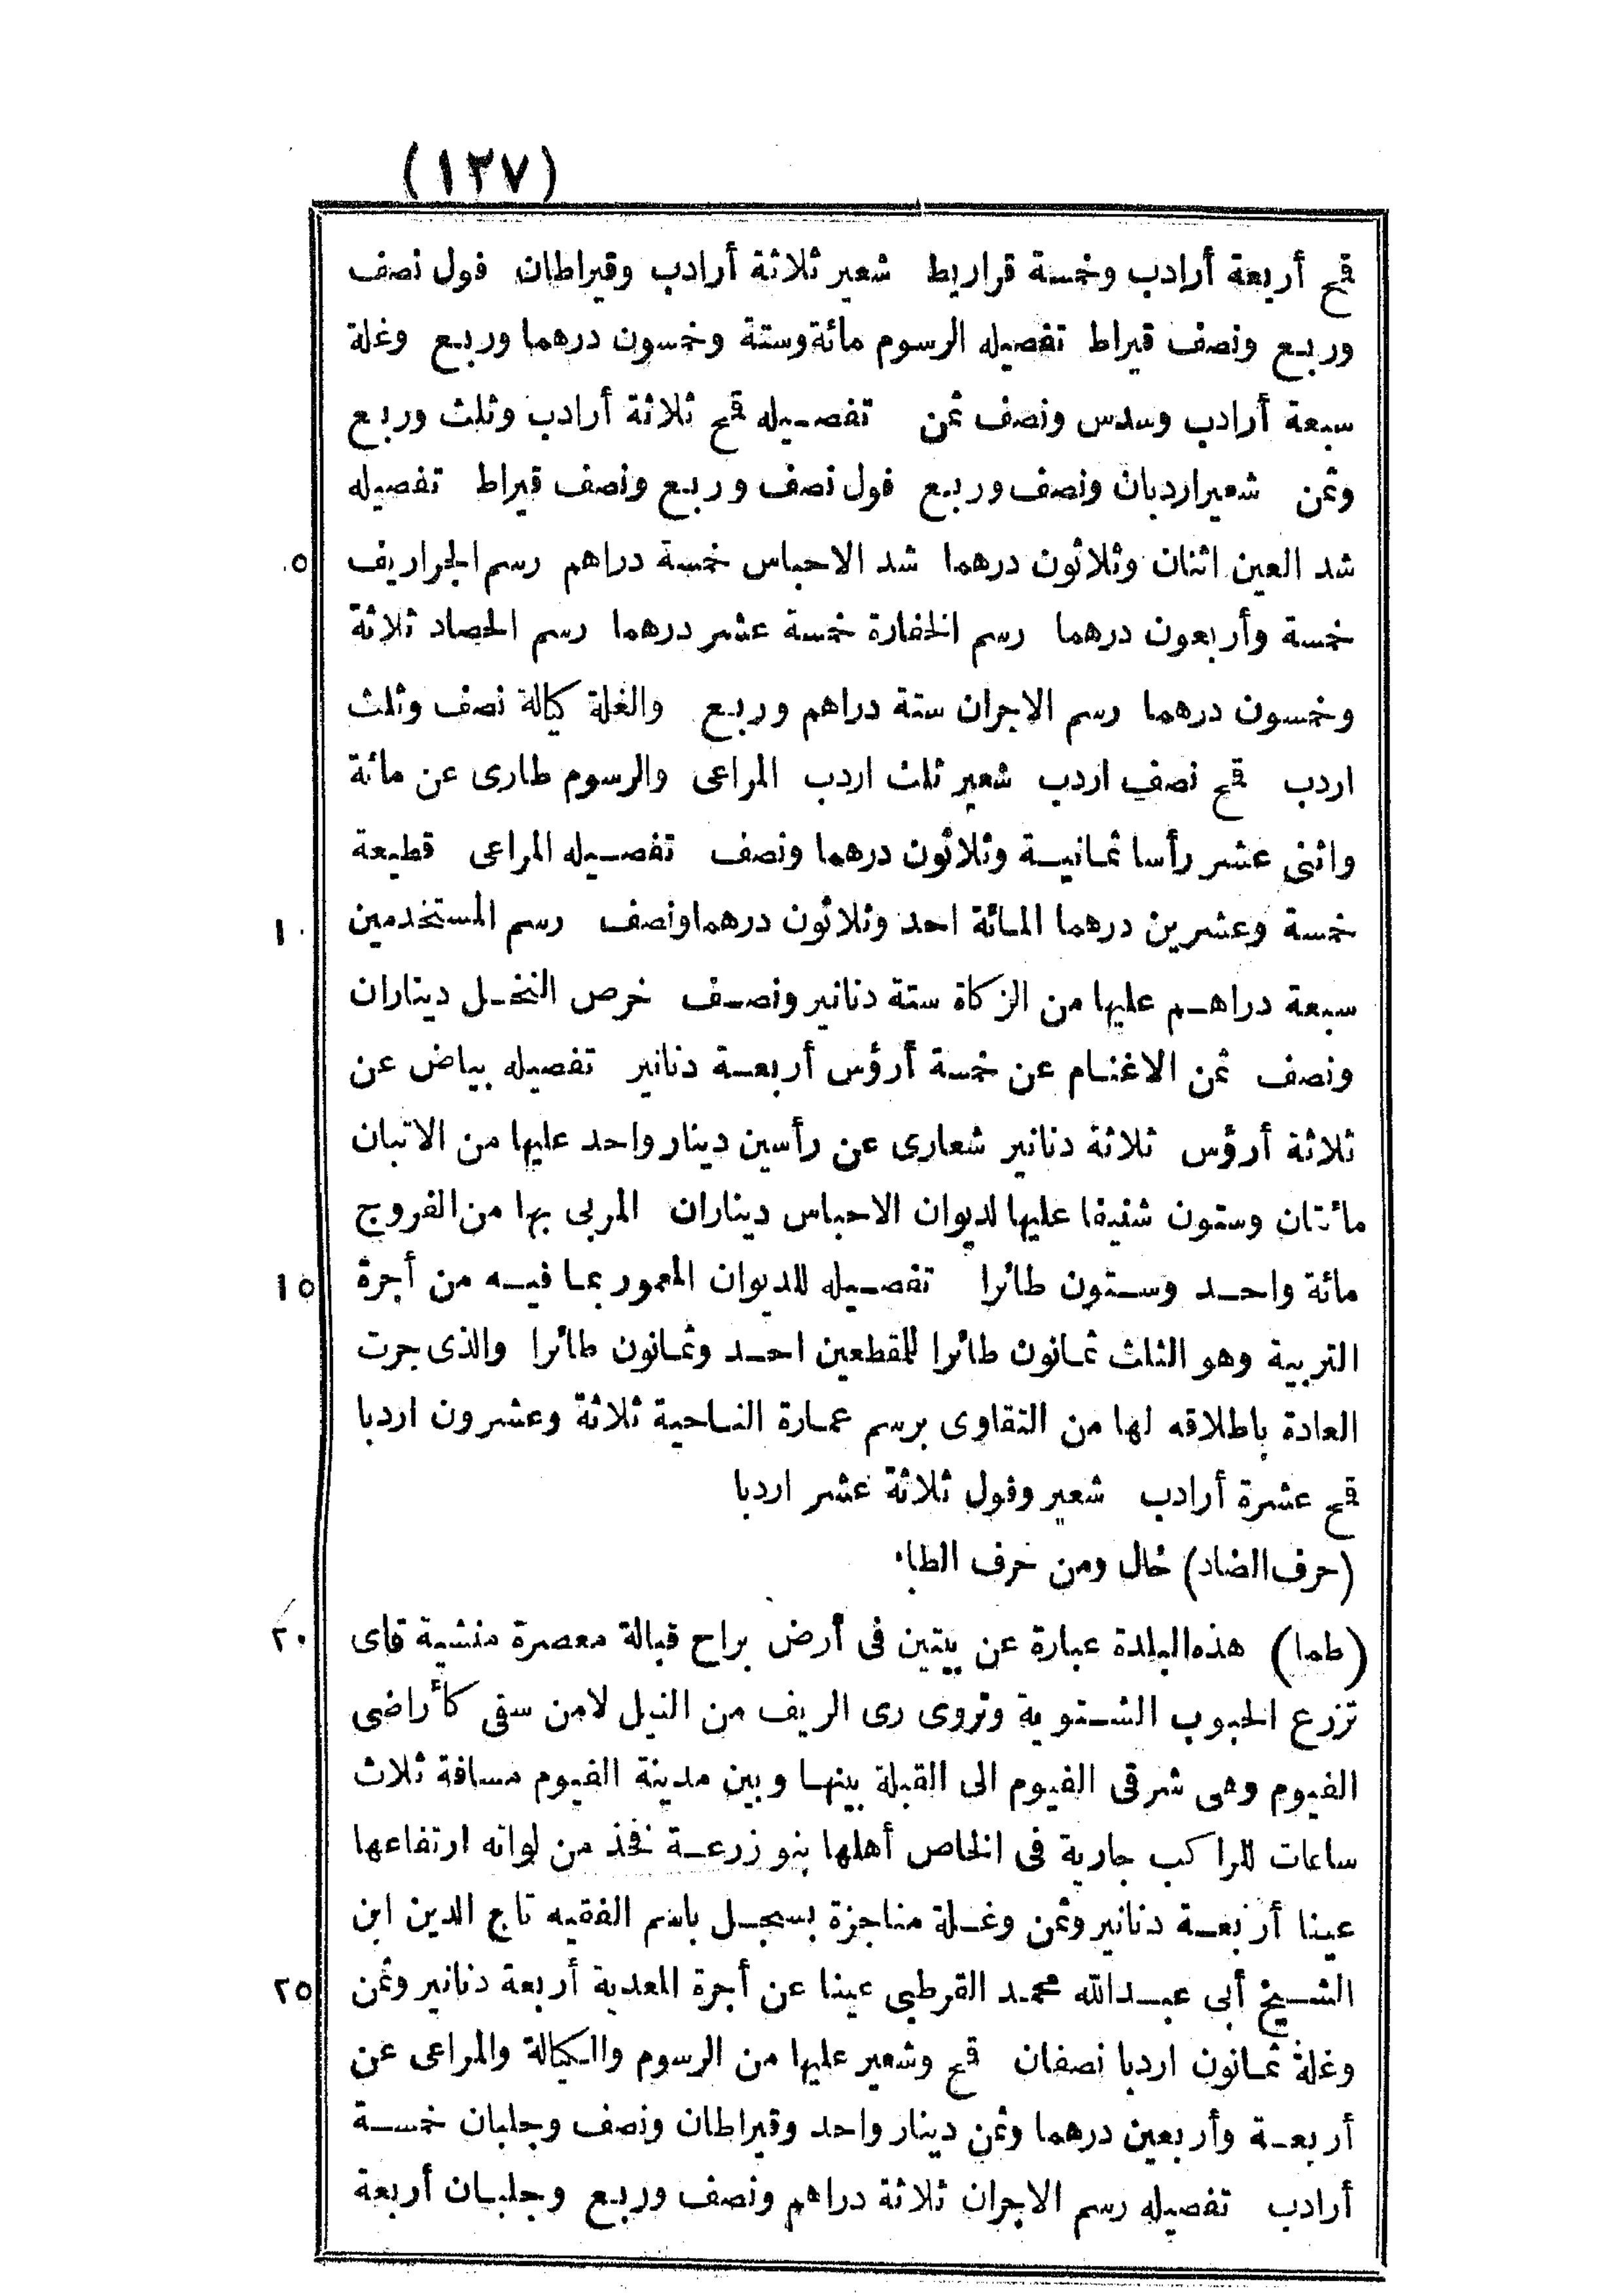 (١٢٧)
قمح أربعة أرادب وخمسة قراريط شعير ثلاثة أرادب وقيراطان فول نصف
وربع ونصف قيراط تفصيله الرسوم مائة وستة وخمسون درهما وربع وغلة
سبعة أرادب وسدس ونصف ثمن تفصيله قمح ثلاثة أرادب وثلث وربع
وثمن شعير اردبان ونصف وربع فول نصف وربع ونصف قيراط تفصيله
شد العين اثنان وثلاثون درهما شد الاحباس خمسة دراهم رسم الجراريف ٥
خمسة وأربعون درهما رسم الخفارة خمسة عشر درهما رسم الحصاد ثلاثة
وخمسون درهما رسم الاجران ستة دراهم وربع والغلة كيالة نصف وثلث
اردب قمح نصف اردب شعير ثلث اردب المراعى والرسوم طارى عن مائة
واثنى عشر رأسا ثمانية وثلاثون درهما ونصف تفصيله المراعى قطيعة
خمسة وعشرين درهما المائة احد وثلاثون درهما ونصف رسم المستخدمين ١٠
سبعة دراهم عليها من الزكاة ستة دنانير ونصف خرص النخل ديناران
ونصف ثمن الاغنام عن خمسة أرؤس أربعة دنانير تفصيله بياض عن
ثلاثة أرؤس ثلاثة دنانير شعارى عن رأسين دينار واحد عليها من الاتبان
مائتان وستون شنيفا عليها لديوان الاحباس ديناران المربى بها من الفروج
مائة واحد وستون طائرا تفصيله للديوان المعمور بما فيه من أجرة ١٥
التربية وهو الثلث ثمانون طائرا للمقطعين احد وثمانون طائرا والذى جرت
العادة باطلاقه لها من التقاوى برسم عمارة الناحية ثلاثة وعشرون اردبا
قمح عشرة أرادب شعير وفول ثلاثة عشر اردبا
(حرف الضاد) خال ومن حرف الطاء
(طما) هذه البلدة عبارة عن بيتين فى أرض براح قبالة معصرة منشية قاى ٢٠
تزرع الحبوب الشتوية وتروى رى الريف من النيل لامن سقى كأراضى
الفيوم وهى شرقى الفيوم الى القبلة بينها وبين مدينة الفيوم مسافة ثلاث
ساعات للراكب جارية فى الخاص أهلها بنو زرعة فخذ من لواته ارتفاعها
عينا أربعة دنانير وثمن وغلة مناجزة بسجل باسم الفقيه تاج الدين ابن
الشيخ أبى عبد الله محمد القرطبى عينا عن أجرة المعدية أربعة دنانير وثمن ٢٥
وغلة ثمانون اردبا نصفان قمح وشعير عليها من الرسوم والكيالة والمراعى عن
أربعة وأربعين درهما وثمن دينار واحد وقيراطان ونصف وجلبان خمسة
أرادب تفصيله رسم الاجران ثلاثة دراهم ونصف وربع وجلبان أربعة